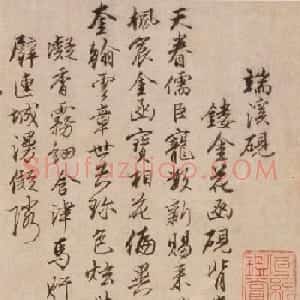 端溪硯
鏤金花函硯背
天眷儒臣寵數新賜來
楓宸金函寶相花備異
奎翰雲章世共珍色炫
凝香霧細含津馬肝
連城漫
Shufaziliao.com